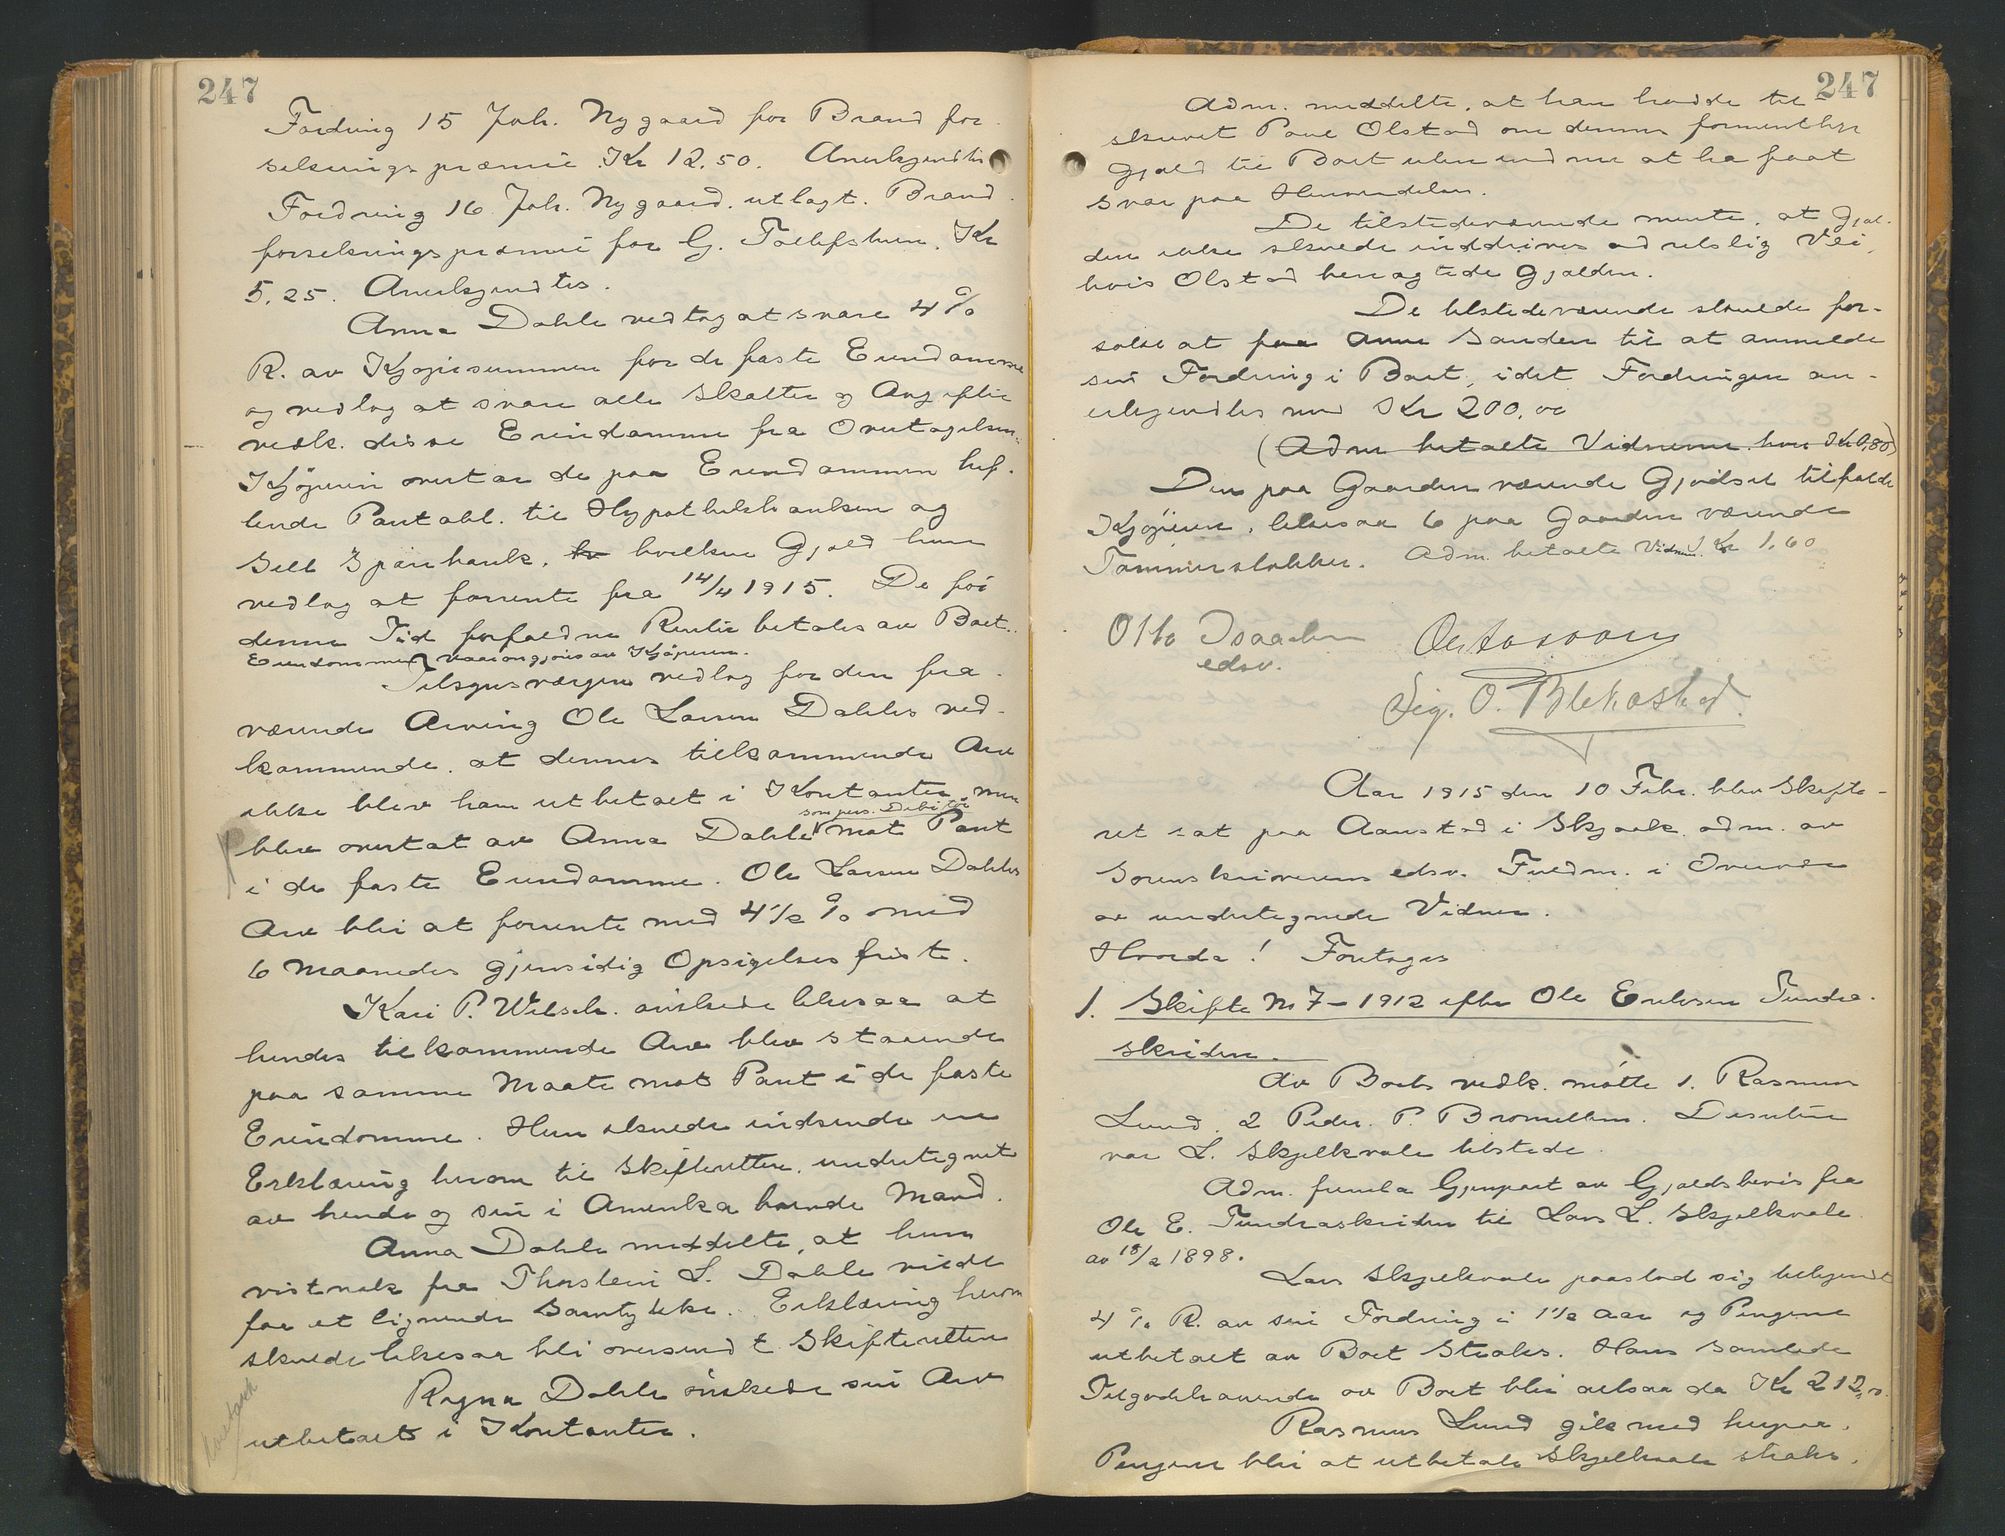 247
Fordring 15 Joh. Nygaard for Brand for-
sikrings præmie Kr 12,50. Anerkjendtes
Fordring 16 Joh. Nygaard. utlagt. Brand
forsekringspræmie for G. Tollefshun. Kr
5,25. Anerkjendtes.
Anna Dahle vedtog at svare 4 %
R. av Kjøpesummen for de faste Eiendomme
og vedtog at svare alle Skatter og Avgifter
vedk. disse Eiendomme fra Overtagelsen.
Kjøperen overtar de paa Eiendommen hef-
tende Pantobl. til Hypothekbanken og
Sell Sparebank, hvilken Gjæld hun
vedtog at forrente fra 14/4 1915. De før
denne Tid forfaldne Renter betales av Boet.
Eiendommens vaaronn gjøres av Kjøperen.
Tilsynsværgen vedtog for den fra-
værende Arving Ole Larsen Dahles ved-
kommende, at dennes tilkommende Arv
ikke blev ham utbetalt i Kontanter, men
som pers. Debitor
blev overtat av Anna Dahle mot Pant
i de faste Eiendomme. Ole Larsen Dahles
Arv blir at forrente med 4 1/2 % med
6 Maaneders gjensidig Opsigelses frist.
Kari P. Wilsch. ønskede likesaa at
hendes tilkommende Arv blev staaende
paa samme Maate mot Pant i de faste
Eiendomme. Hun skulde indsende en
Erklæring herom til Skifteretten, undertegnet
av hende og sin i Amerika boende Mand.
Anna Dahle meddelte, at hun
vistnok fra Thorstein L. Dahle vilde
faa et lignende Samtykke. Erklæring herom
skulde likesaa bli oversendt Skifteretten
Ragna Dahle ønskede sin Arv
utbetalt i Kontanter.
247
Adm. meddelte, at han hadde til-
skrevet Poul Olstad om dennes formentlige
Gjæld til Boet uten endnu at ha faat
Svar paa Henvendelsen.
De tilstedeværende mente, at Gjæl-
den ikke skulde inddrives ad retslig Vei,
hvis Olstad benegtede Gjælden.
De tilstedeværende skulde for-
søke at faa Anne Sanden til at anmelde
sin Fordring i Boet, idet Fordringen an-
erkjendtes med Kr 200,00
(Adm betalte Vidnerne hver Kr 0,80)
Den paa Gaarden værende Gjødsel tilfaldt
Kjøperen, likesaa 6 paa Gaarden værende
Tømmerstokker. Adm. betalte Vidner Kr 1,60
Otto Isaachsen
edsv.
Sig. O. Blekastad.
Aar 1915 den 10 Febr. blev Skifte-
ret sat paa Aanstad i Skjaak adm. av
Sorenskriverens edsv. Fuldm. i Overvær
av undertegnede Vidner.
Hvorda! Foretages
1. Skifte No 7 – 1912 efter Ole Eriksen Tundra-
skriden.
Av Boets vedk. møtte 1. Rasmus
Lund. 2 Peder P. Bromillem. Desuten
var L. Skjelkvale tilstede.
Adm. fremla Gjenpart av Gjældsbevis fra
Ole E. Tundraskriden til Lars L. Skjelkvale
av 18/2 1898.
Lars Skjelkvale paastod sig tilkjendt
4 % R. av sin Fordring i 1 1/2 Aar og Pengene
utbetalt av Boet straks. Hans samlede
Tilgodehavende av Boet blir altsaa da Kr 212,
Rasmus Lund gik med herpaa.
Pengene blir at utbetale Skjelkvale straks.